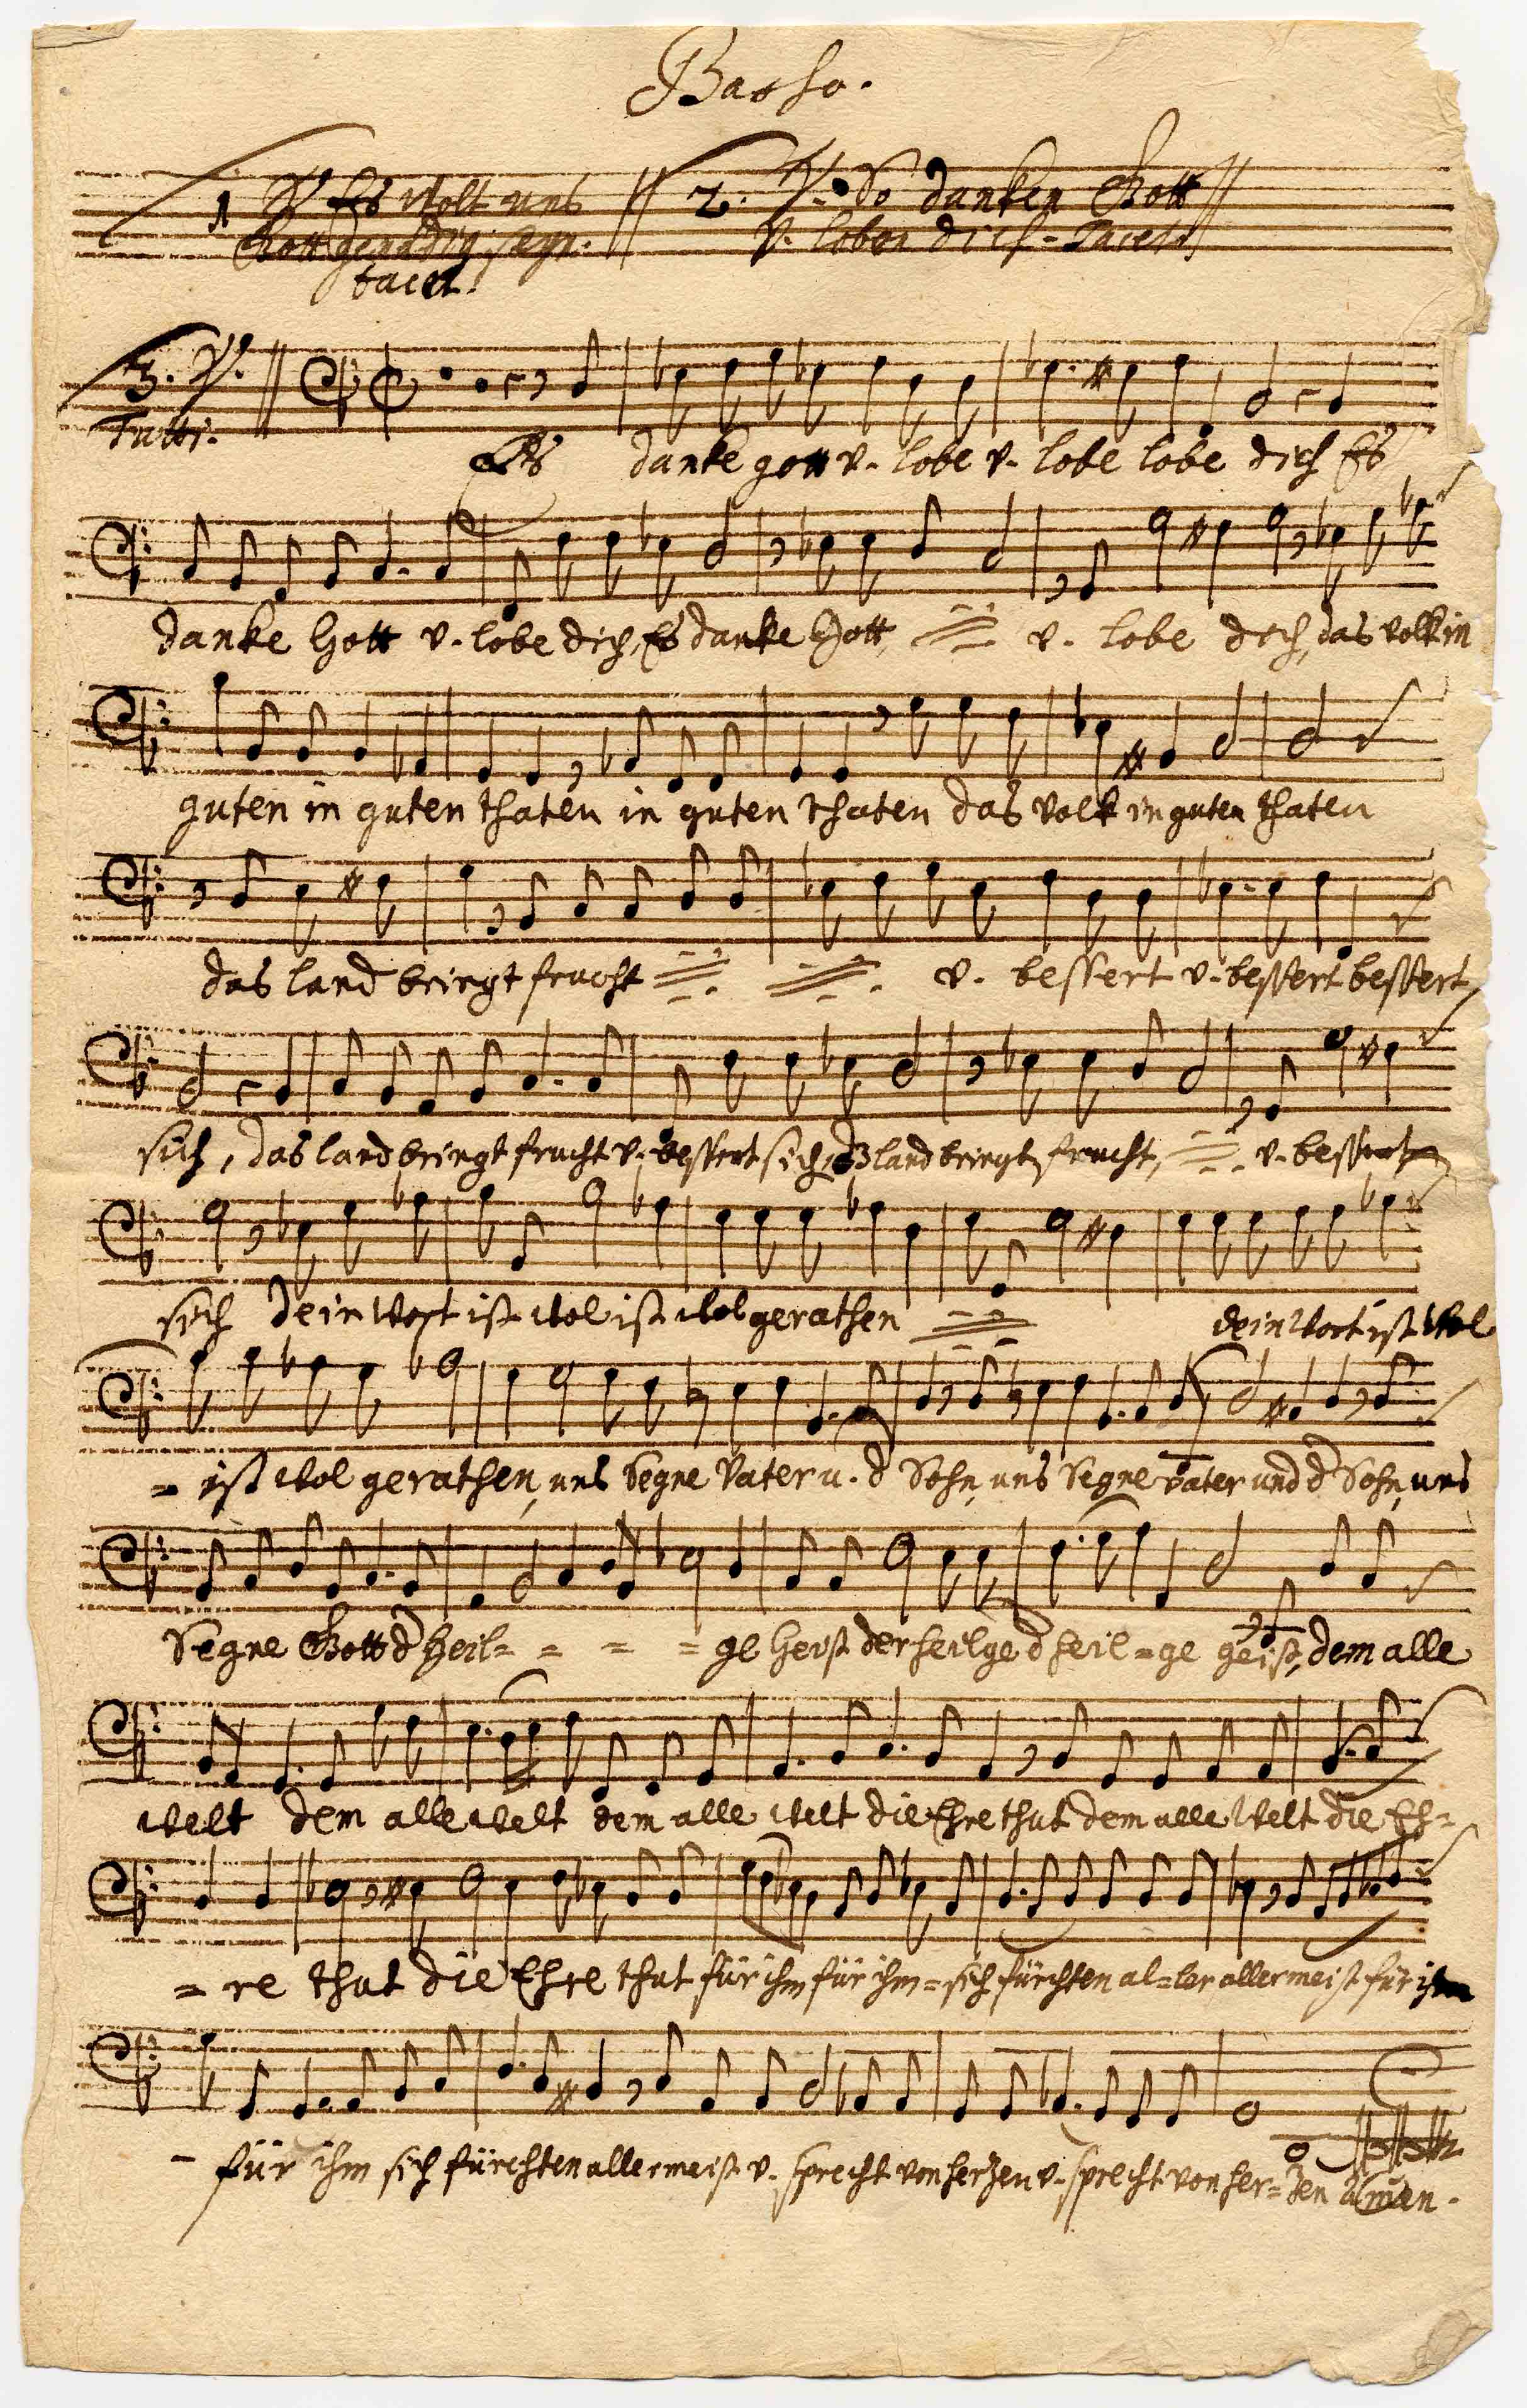 Basso.
1 V. Es wolt uns || 2. V. So danken Gott
Gott genädig seyn. || v. loben dich - Tacet.
tacet.
3. V.
Tutti.
Es danke gott v. lobe v. lobe lobe dich Es
danke Gott v. lobe dich, Es danke Gott, v. lobe dich, das volk in
guten in guten thaten in guten thaten das volk in guten thaten
das land bringt frucht v. bessert v. bessert bessert
sich, das land bringt frucht v. bessert sich, dz land bringt frucht, v. bessert
sich dein Wort ist wol ist wol gerathen dein Wort ist wol
= ist wol gerathen, uns Segne Vater u. d Sohn, uns Segne vater und d Sohn, uns
Segne Gott d Heil= = = = ge Geist der heilge d heil=ge geist, dem alle
welt dem alle welt dem alle welt die Ehre thut dem alle Welt die Eh=
= re thut die Ehre thut für ihm für ihm = sich fürchten al=ler allermeist für ihm
- für ihm sich fürchten allermeist v. sprecht von herzen v. sprecht von her=zen Amen.